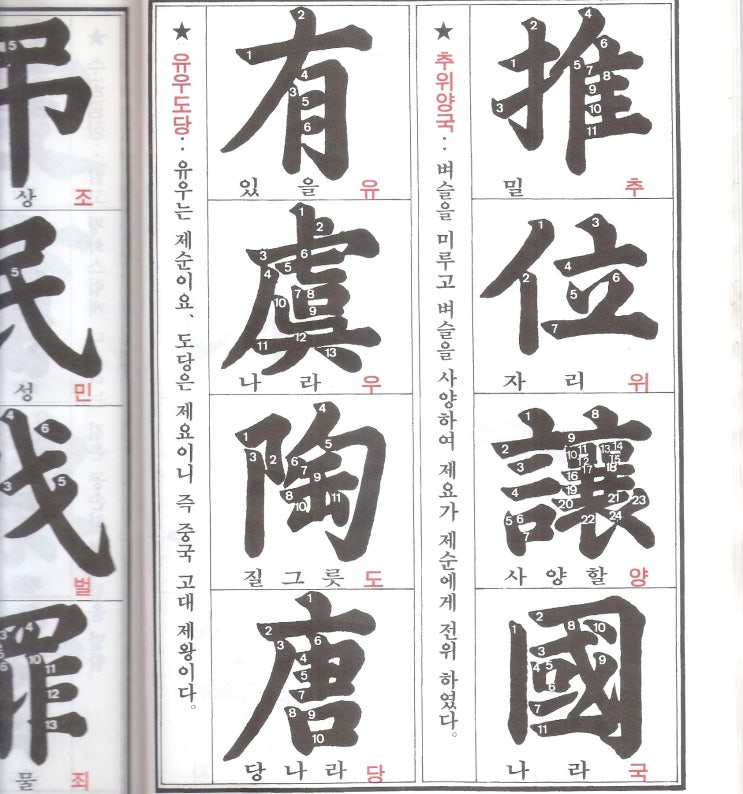 推
밀 추
位
자리 위
讓
사양할 양
國
나라 국
★ 추위양국 : 벼슬을 미루고 벼슬을 사양하여 제요가 제순에게 전위 하였다。
有
있을 유
虞
나라 우
陶
질그릇 도
唐
당나라 당
★ 유우도당 : 유우는 제순이요、 도당은 제요이니 즉 중국 고대 제왕이다。
상 조
民
성 민
벌
罪
물 죄